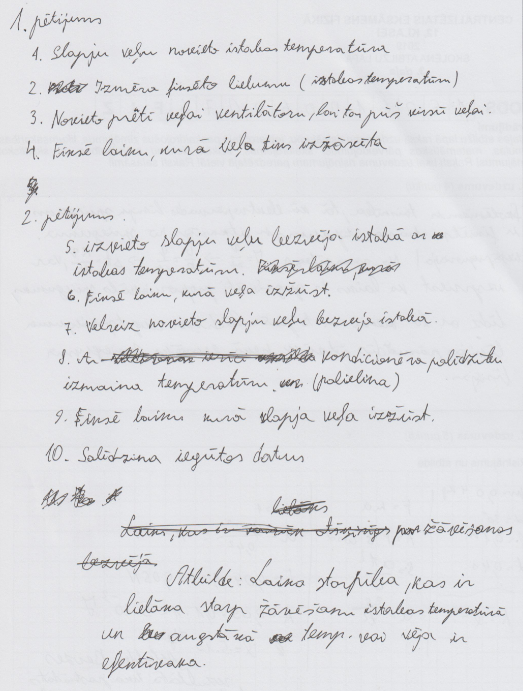 1. pētījums
1. Slapju veļu novieto istabas temperatūra
2. Izmēra fiksēto lielumu (istabas temperatūru)
3. Novieto pretī veļai ventilātoru, lai tas pūš virsū veļai.
4. Fiksē laiku, kurā veļa tiks izžāvēta
2. pētījums.
5. izvieto slapju veļu bezvēja istabā ar
istabas temperatūru.
6. Fiksē laiku, kurā veļa izžūst.
7. Vēlreiz novieto slapju veļu bezvēja istabā.
8. Ar kondicioniera palīdzību
izmaina temperatūru. (palielina)
9. Fiksē laiku kurā slapja veļa izžūst.
10. Salīdzina iegūtos datus
žāvēšanas
Atbilde: Laika starpība, kas ir
lielāka starp žāvēšanu istabas temperatūrā
un augstākā temp. vai vēja ir
efektīvāka.